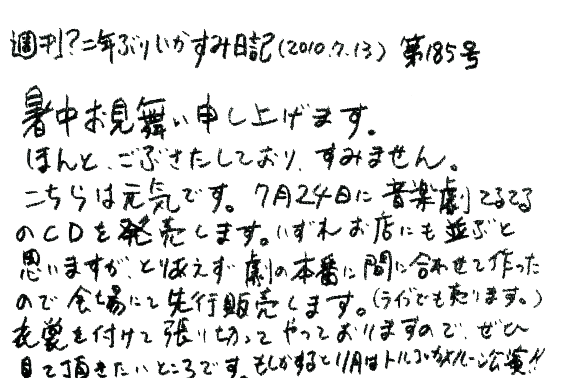 週刊?二年ぶりいかすみ日記(2010.7.13) 第185号
暑中お見舞い申し上げます。
ほんと、ごぶさたしており、すみません。
こちらは元気です。7月24日に音楽劇てるてる
のCDを発売します。いずれお店にも並ぶと
思いますが、とりあえず劇の本番に間に合わせて作った
ので会場にて先行販売します。(ライブでも売ります。)
衣裳を付けて張り切ってやっておりますので、ぜひ
見て頂きたいところです。もしかすると11月はトルコ 公演!!